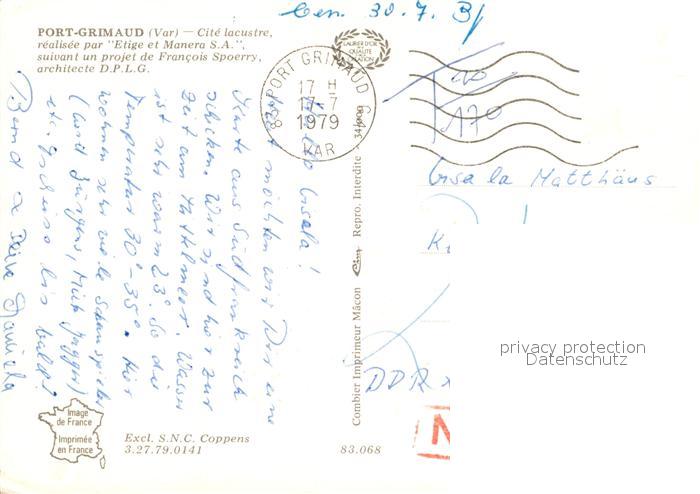 Ben. 30.7. B/
PORT-GRIMAUD (Var) — Cité lacustre,
réalisée par "Etige et Manera S.A.",
suivant un projet de François Spoerry,
architecte D.P.L.G.
LAURIER D'OR
DE LA
QUALITÉ
PORT GRIMAUD
17 H
17-7
1979
VAR
170
Gisela Matthäus
K
DDR
N
privacy protection
Datenschutz
Hallo Gisela!
Heut möchten wir Dir eine
Karte aus Südfrankreich
schicken. Wir sind hier zur
Zeit am Mittelmeer. Wasser
ist sehr warm 23°. So die
Temperatur 30°-35°. Hier
wohnen sehr viele Schauspieler
(Curd Jürgens, Mick Jagger)
etc. Tschüss bis bald!
Bernd & Deine Daniela
Combier Imprimeur Mâcon Cim Repro. Interdite
Image
de France
Imprimée
en France
Excl. S.N.C. Coppens
3.27.79.0141
83.068